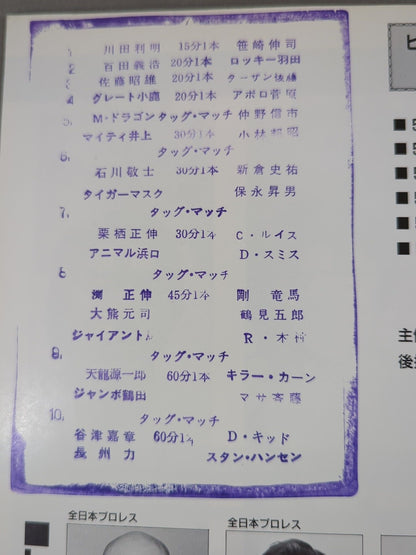 1. 川田利明 15分1本 笹崎伸司
百田義浩 20分1本 ロッキー羽田
佐藤昭雄 20分1本 ターザン後藤
4 グレート小鹿 20分1本 アポロ菅原
5 M・ドラゴン タッグ・マッチ 仲野信市
マイティ井上 30分1本 小林邦昭
6. タッグ・マッチ
石川敬士 30分1本 新倉史祐
タイガーマスク 保永昇男
7. タッグ・マッチ
栗栖正伸 30分1本 C・ルイス
アニマル浜口 D・スミス
8 タッグ・マッチ
渕 正伸 45分1本 剛 竜馬
大熊元司 鶴見五郎
ジャイアント R・木村
9. タッグ・マッチ
天龍源一郎 60分1本 キラー・カーン
ジャンボ鶴田 マサ斉藤
10. タッグ・マッチ
谷津嘉章 60分1本 D・キッド
長州 力 スタン・ハンセン
ヒ
■
■
■
■
■
■
主
後
全日本プロレス
全日本プロレス